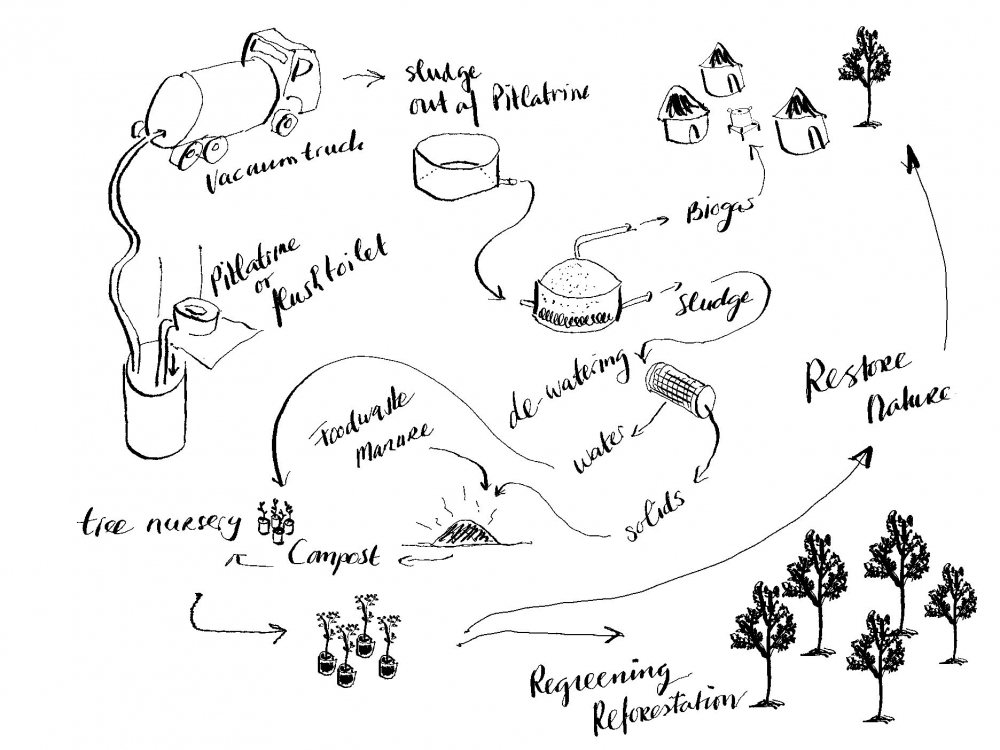 sludge
out of Pitlatrine
Vacuumtruck
Pitlatrine
or
flushtoilet
Biogas
sludge
de-watering
water
solids
Foodwaste
Manure
tree nursery
Compost
Restore
Nature
Regreening
Reforestation